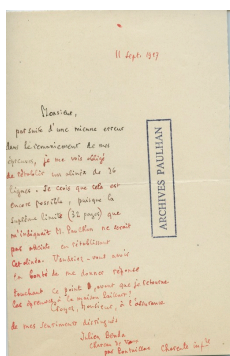 11 Sept. 1927
Monsieur,
par suite d'une mienne erreur
dans le remaniement de mes
épreuves, je me vois obligé
de rétablir un alinéa de 36
lignes. Je crois que cela est
encore possible, puisque la
suprême limite (32 pages) que
m'indiquait M. Paulhan ne serait
pas atteinte en rétablissant
cet alinéa. Voudriez-vous avoir
la bonté de me donner réponse
touchant ce point avant que je retourne
les épreuves à
Croyez, Monsieur, à l'assurance
de mes sentiments distingués
Julien Benda
par
Charente Infre
ARCHIVES PAULHAN